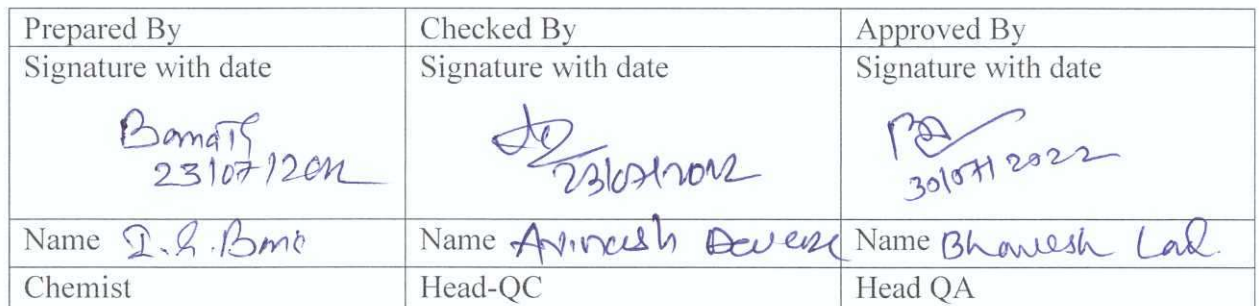 Prepared By Checked By Approved By
Signature with date Signature with date Signature with date
23/07/2022 23/07/2022 30/07/2022
Name Name Avinash Name Bhavesh Lad.
Chemist Head-QC Head QA